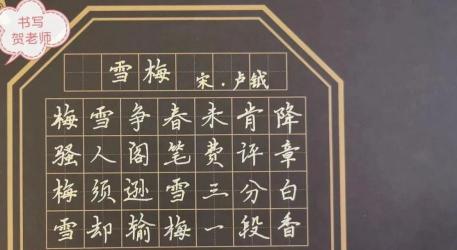 书写
贺老师
雪梅
宋·卢钺
梅雪争春未肯降
骚人阁笔费评章
梅须逊雪三分白
雪却输梅一段香